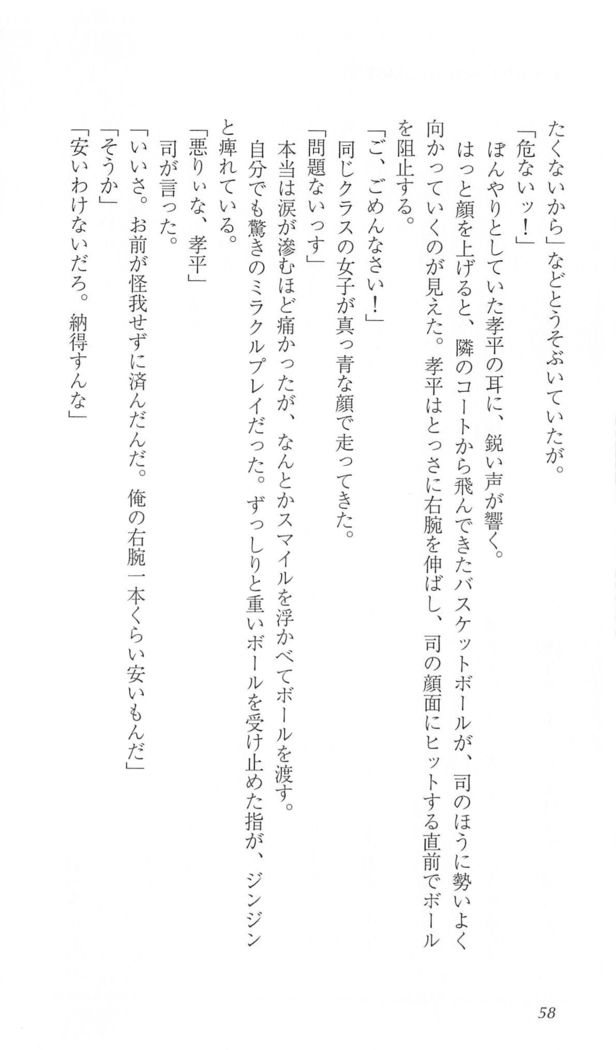 たくないから」などとうそぶいていたが。
「危ないッ！」
ぼんやりとしていた孝平の耳に、鋭い声が響く。
はっと顔を上げると、隣のコートから飛んできたバスケットボールが、司のほうに勢いよく
向かっていくのが見えた。孝平はとっさに右腕を伸ばし、司の顔面にヒットする直前でボール
を阻止する。
「ご、ごめんなさい！」
同じクラスの女子が真っ青な顔で走ってきた。
「問題ないっす」
本当は涙が滲むほど痛かったが、なんとかスマイルを浮かべてボールを渡す。
自分でも驚きのミラクルプレイだった。ずっしりと重いボールを受け止めた指が、ジンジン
と痺れている。
「悪りぃな、孝平」
司が言った。
「いいさ。お前が怪我せずに済んだんだ。俺の右腕一本くらい安いもんだ」
「そうか」
「安いわけないだろ。納得すんな」
58